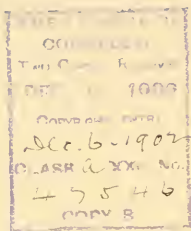 CONGRESS
Two Copies Received
DEC
COPYRIGHT ENTRY
Dec. 6-1902
CLASS a XXc. No.
47546
COPY B